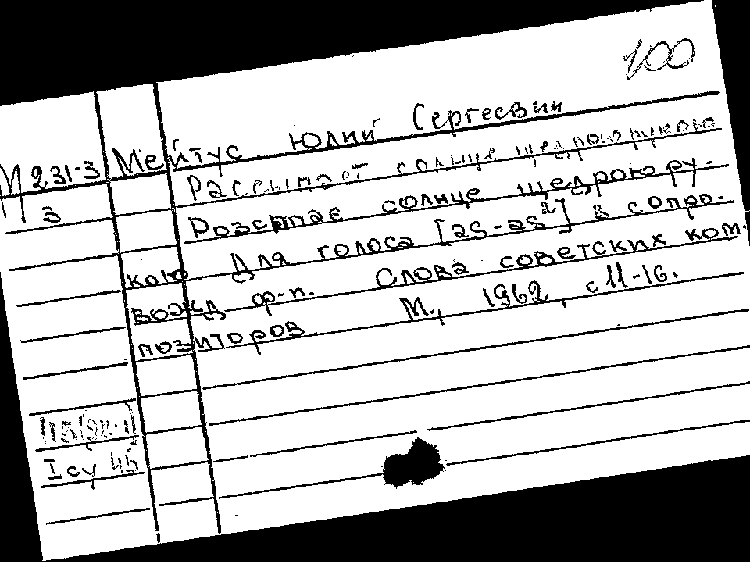 100
М 231-3
3
Мейтус Юлий Сергеевич
Рассыпает солнце щедрорукою
Розсыпае солнце щедрокору-
кою Для голоса [as-as²] в сопро-
вожд ф-п. Слова советских ком-
позиторов М., 1962, с 11-16.
Icy 45